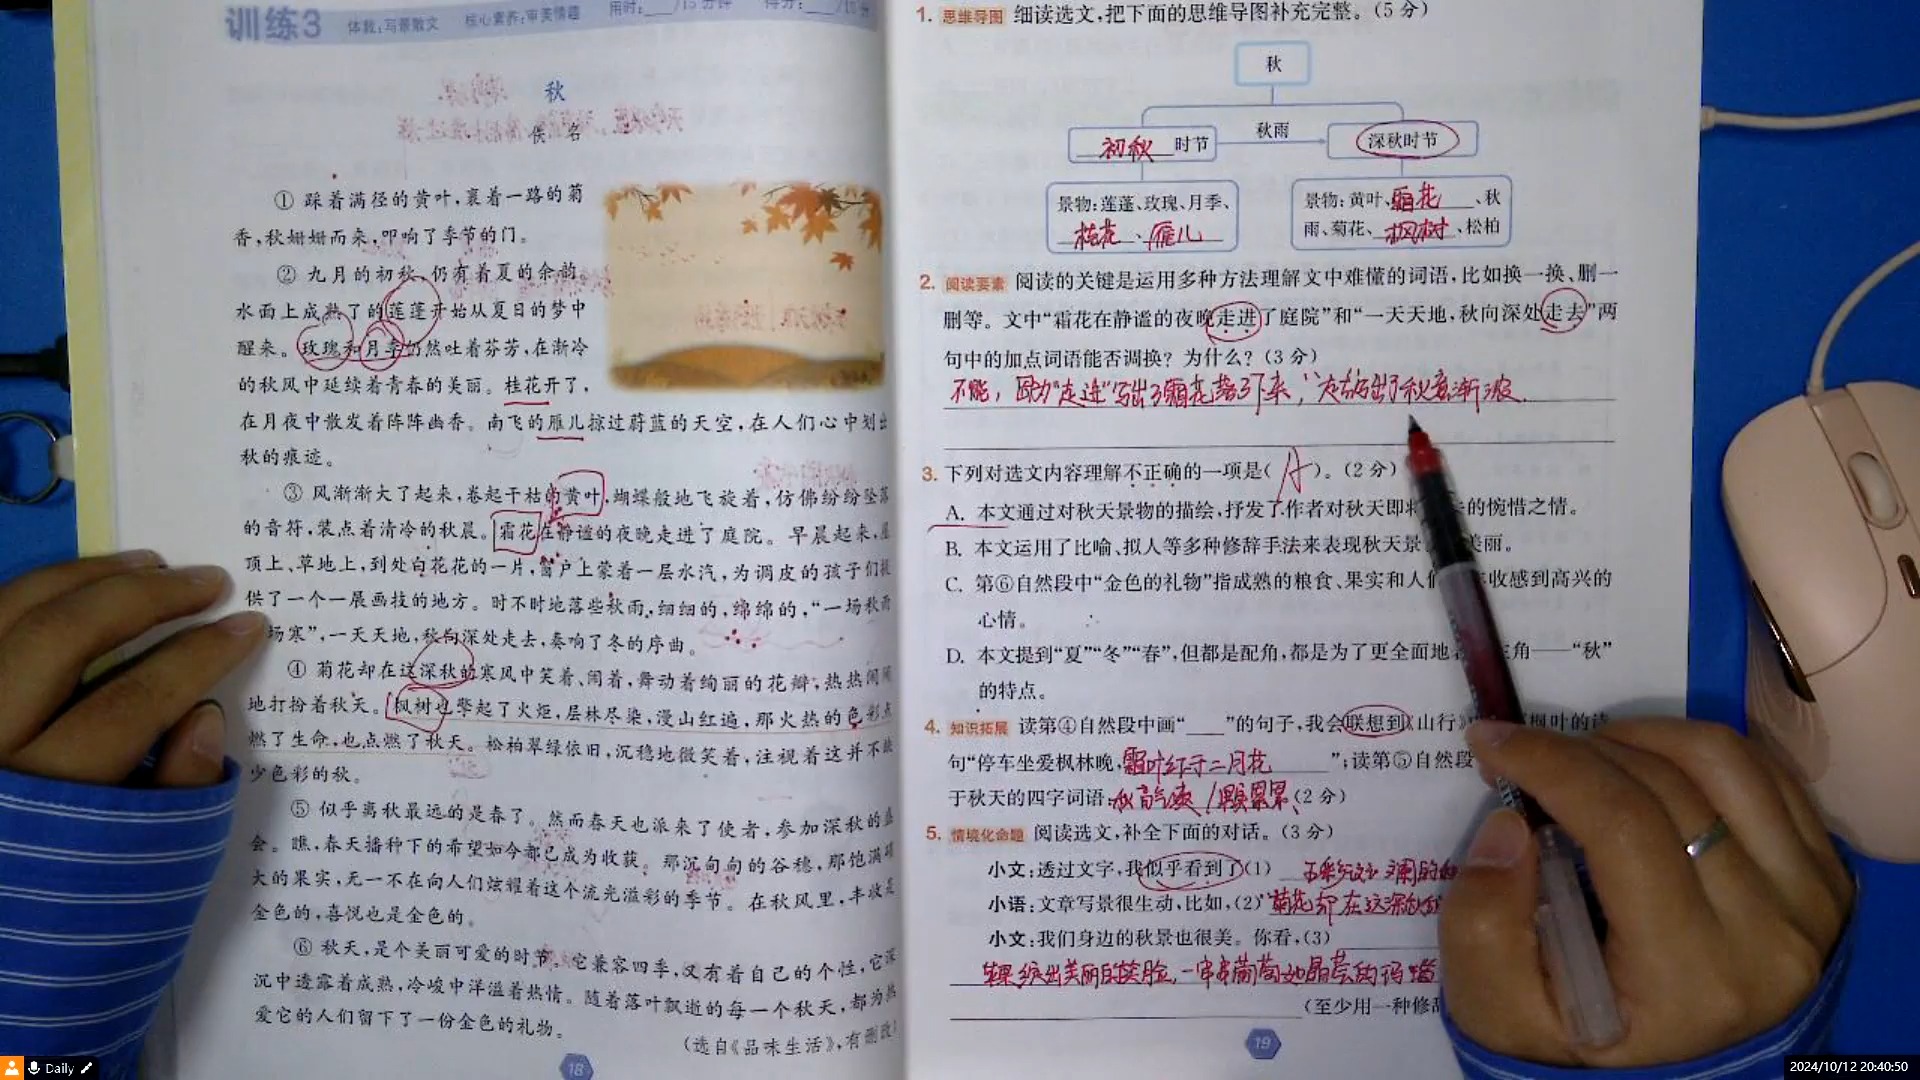 训练3 体裁:写景散文 核心素养:审美情趣 用时:___/15分钟 得分:___/15分
秋
佚名
① 踩着满径的黄叶,裹着一路的菊
香,秋姗姗而来,叩响了季节的门。
② 九月的初秋,仍有着夏的余韵,
水面上成熟了的莲蓬开始从夏日的梦中
醒来。玫瑰和月季仍然吐着芬芳,在渐冷
的秋风中延续着青春的美丽。桂花开了,
在月夜中散发着阵阵幽香。南飞的雁儿掠过蔚蓝的天空,在人们心中划出
秋的痕迹。
③ 风渐渐大了起来,卷起干枯的黄叶,蝴蝶般地飞旋着,仿佛纷纷坠落
的音符,装点着清冷的秋晨。霜花在静谧的夜晚走进了庭院。早晨起来,屋
顶上、草地上,到处白花花的一片,窗户上蒙着一层水汽,为调皮的孩子们提
供了一个一展画技的地方。时不时地落些秋雨,细细的,绵绵的,“一场秋雨
场寒”,一天天地,秋向深处走去,奏响了冬的序曲。
④ 菊花却在这深秋的寒风中笑着、闹着,舞动着绚丽的花瓣,热热闹闹
地打扮着秋天。枫树也擎起了火炬,层林尽染,漫山红遍,那火热的色彩点
燃了生命,也点燃了秋天。松柏翠绿依旧,沉稳地微笑着,注视着这并不缺
少色彩的秋。
⑤ 似乎离秋最远的是春了。然而春天也派来了使者,参加深秋的盛
会。瞧,春天播种下的希望如今都已成为收获。那沉甸甸的谷穗,那饱满硕
大的果实,无一不在向人们炫耀着这个流光溢彩的季节。在秋风里,丰收是
金色的,喜悦也是金色的。
⑥ 秋天,是个美丽可爱的时节。它兼容四季,又有着自己的个性,它深
沉中透露着成熟,冷峻中洋溢着热情。随着落叶飘逝的每一个秋天,都为热
爱它的人们留下了一份金色的礼物。
(选自《品味生活》,有删改)
18
1. 思维导图 细读选文,把下面的思维导图补充完整。(5分)
秋
初秋 时节 秋雨 深秋时节
景物:莲蓬、玫瑰、月季、
桂花、雁儿
景物:黄叶、霜花、秋
雨、菊花、枫树、松柏
2. 阅读要素 阅读的关键是运用多种方法理解文中难懂的词语,比如换一换、删一
删等。文中“霜花在静谧的夜晚走进了庭院”和“一天天地,秋向深处走去”两
句中的加点词语能否调换?为什么?(3分)
不能,因为“走进”写出了霜花落了下来,“走去”写出了秋意渐浓.
3. 下列对选文内容理解不正确的一项是( A )。(2分)
A. 本文通过对秋天景物的描绘,抒发了作者对秋天即将 的惋惜之情。
B. 本文运用了比喻、拟人等多种修辞手法来表现秋天景 美丽。
C. 第⑥自然段中“金色的礼物”指成熟的粮食、果实和人们 收感到高兴的
心情。
D. 本文提到“夏”“冬”“春”,但都是配角,都是为了更全面地 主角——“秋”
的特点。
4. 知识拓展 读第④自然段中画“___”的句子,我会联想到《山行》 枫叶的诗
句“停车坐爱枫林晚,霜叶红于二月花”;读第⑤自然段
于秋天的四字词语:秋高气爽 / 硕果累累(2分)
5. 情境化命题 阅读选文,补全下面的对话。(3分)
小文:透过文字,我似乎看到了(1)
小语:文章写景很生动,比如,(2)“菊花却在这深秋的
小文:我们身边的秋景也很美。你看,(3)
出美丽的笑脸,一串串葡萄如晶莹的玛瑙
(至少用一种修辞
19
Daily
2024/10/12 20:40:50